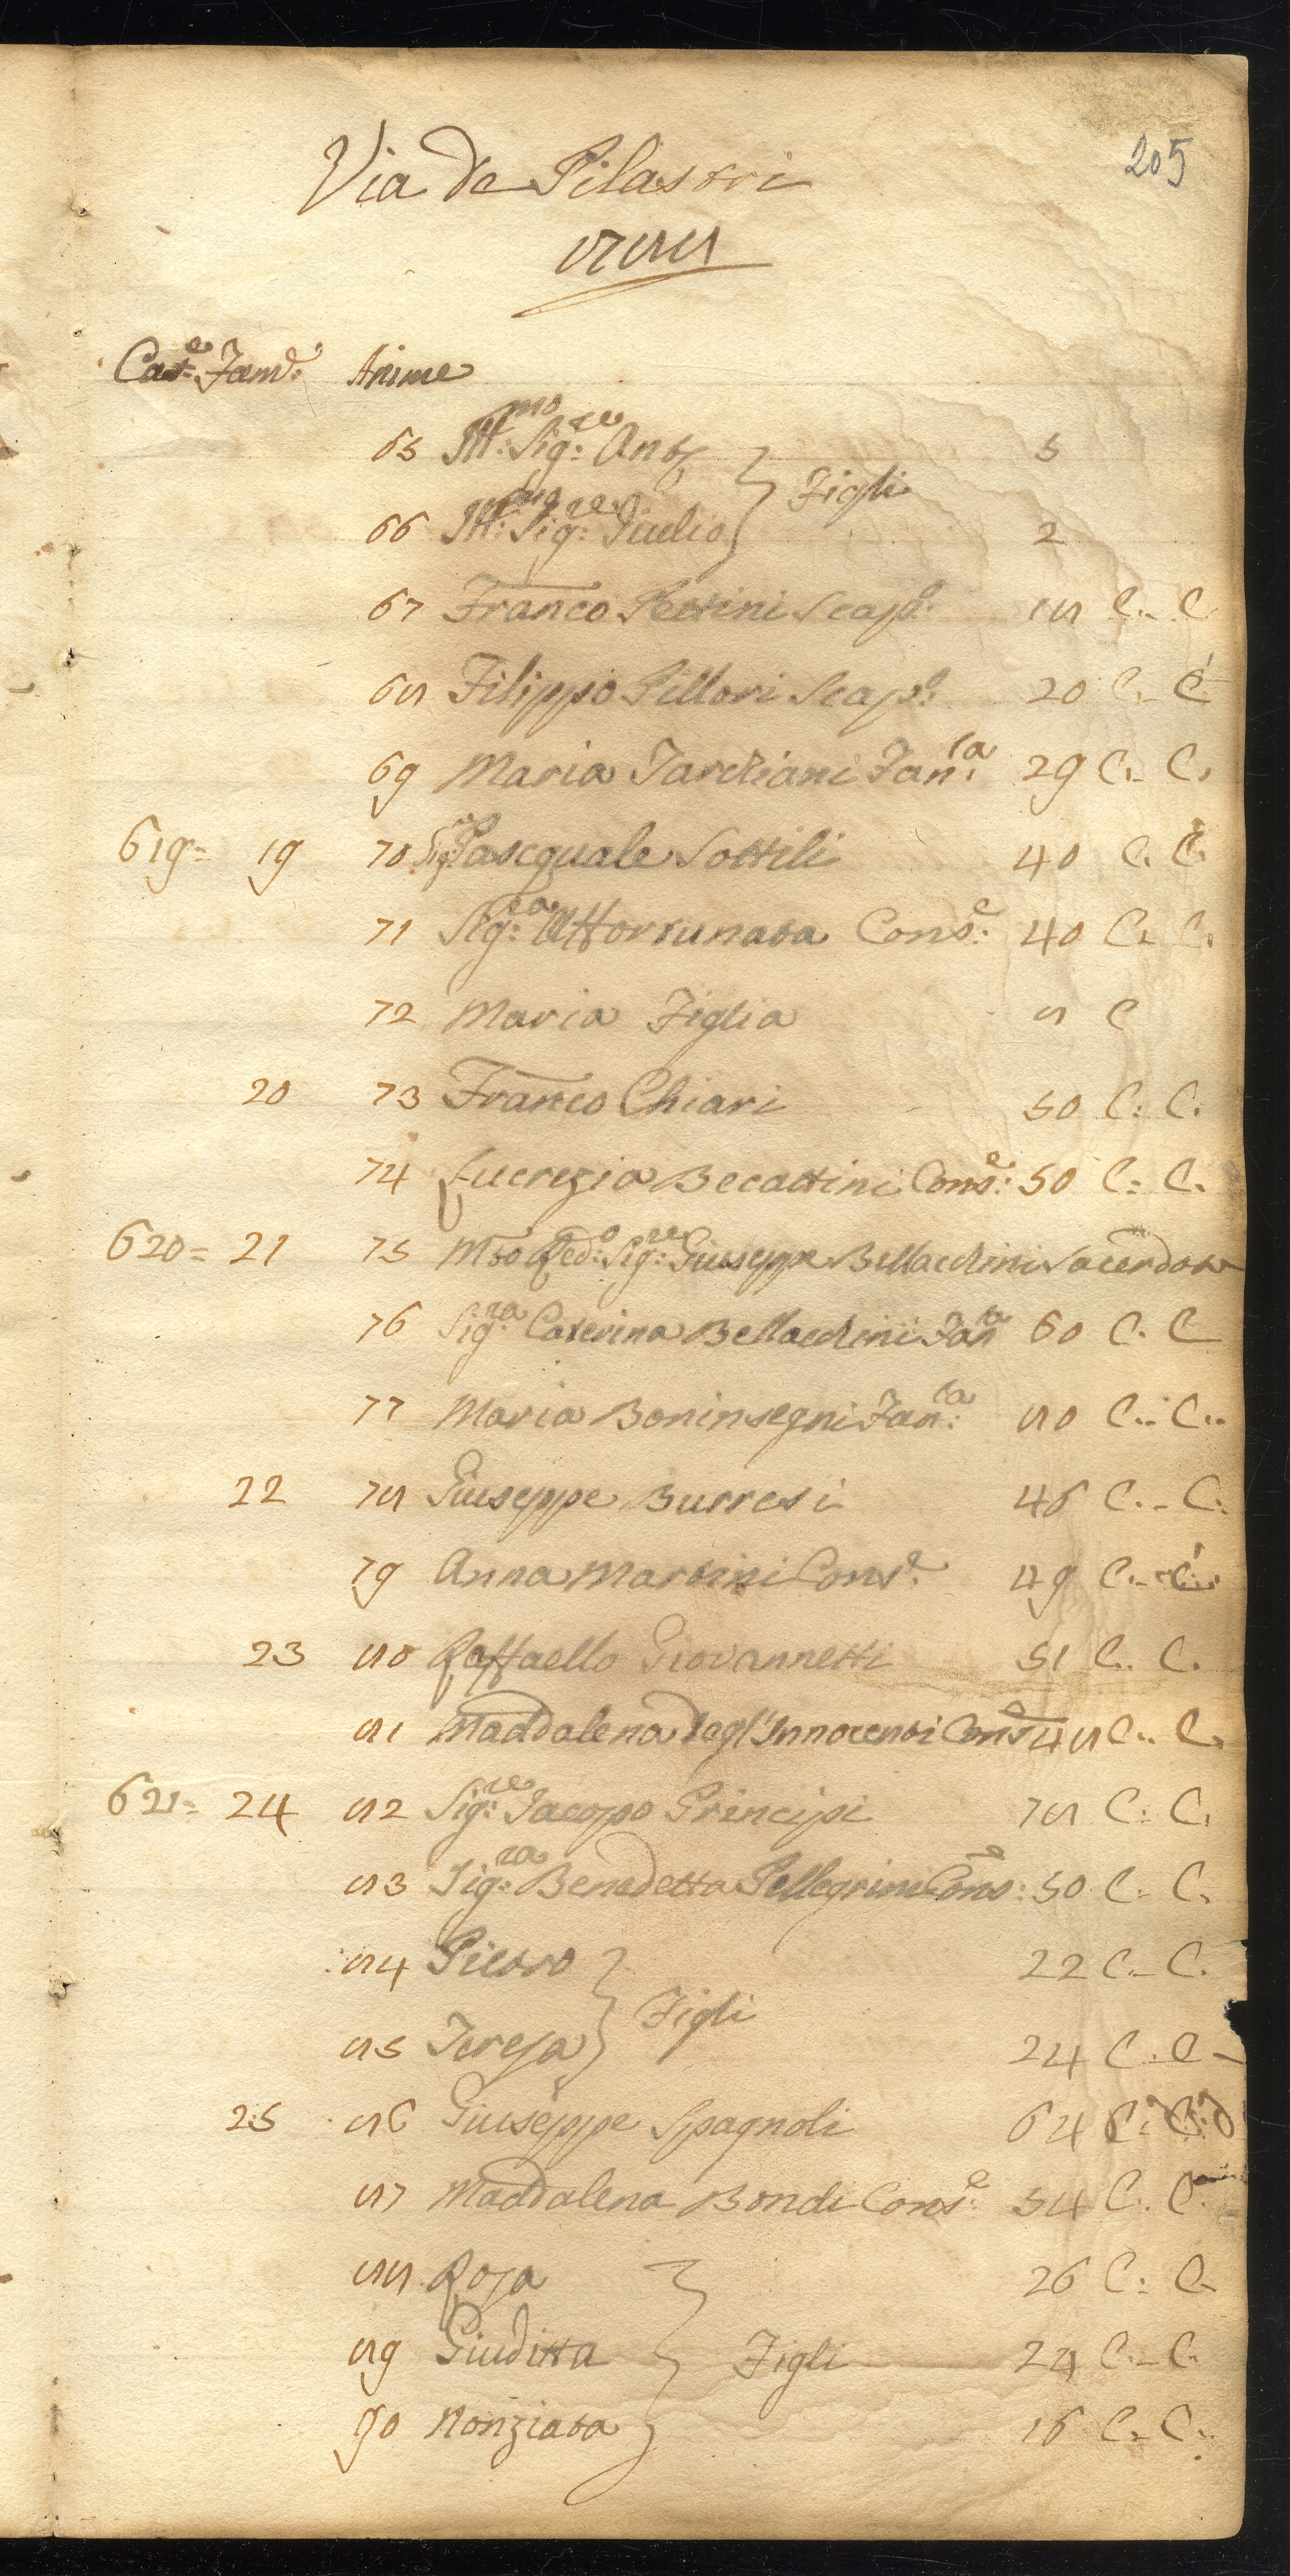 205
Via de Pilastri
1788
Case Fam.e Anime
65 Ill:mo Sig:re Ant.o } Figli 5
66 Ill:mo Sig:re Giulio } 2
67 Franco Pettini Scap.o 18 C. C
68 Filippo Pillori Scap.o 20 C. C
69 Maria Tarchiani Fan.ca 29 C. C.
619= 19 70 Sig.re Pasquale Sottili 40 C. C.
71 Sig:ra Affortunata Cons:e 40 C. C.
72 Maria Figlia 8 C
20 73 Franco Chiari 50 C: C.
74 Lucrezia Becattini Cons:e 50 C: C.
620= 21 75 Mto Red:o Sig:re Giuseppe Bellacchini Sacerdote
76 Sig:ra Caterina Bellacchini Fan.la 60 C. C
77 Maria Boninsegni Fan:la 80 C. C.
22 78 Giuseppe Burresi 46 C. C.
79 Anna Martini Cons.e 49 C. C.
23 80 Raffaello Giovannetti 51 C. C.
81 Maddalena Degl'Innocenti Cons.e 48 C. C.
621= 24 82 Sig:re Jacopo Principi 78 C: C.
83 Sig:ra Benedetta Pellegrini Cons:e 50 C. C.
84 Pietro } Figli 22 C. C.
85 Teresa } 24 C. C
25 86 Giuseppe Spagnoli 64 C. C.
87 Maddalena Bondi Cons:e 54 C. C.
88 Rosa 26 C: C.
89 Giuditta } Figli 24 C. C.
90 Nonziata 16 C. C.